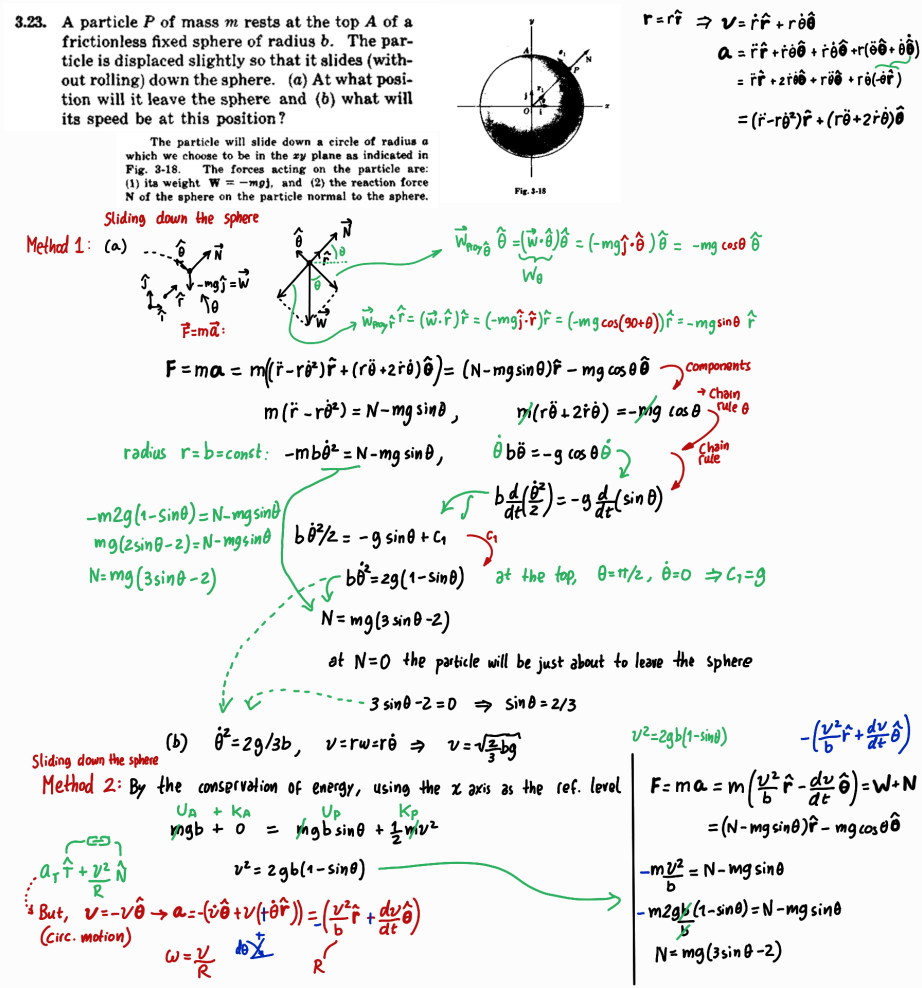 3.23. A particle P of mass m rests at the top A of a
frictionless fixed sphere of radius b. The par-
ticle is displaced slightly so that it slides (with-
out rolling) down the sphere. (a) At what posi-
tion will it leave the sphere and (b) what will
its speed be at this position?
The particle will slide down a circle of radius a
which we choose to be in the xy plane as indicated in
Fig. 3-18. The forces acting on the particle are:
(1) its weight W = −mgj, and (2) the reaction force
N of the sphere on the particle normal to the sphere.
y
A
P
N
r₁
j
O
i
x
Fig. 3-18
r = r r̂ ⇒ v = ṙ r̂ + r θ̇ θ̂
a = r̈ r̂ + ṙ θ̇ θ̂ + ṙ θ̇ θ̂ + r(θ̈ θ̂ + θ̇ θ̂̇)
= r̈ r̂ + 2ṙ θ̇ θ̂ + r θ̈ θ̂ + r θ̇(−θ̇ r̂)
= (r̈ − r θ̇²) r̂ + (r θ̈ + 2ṙ θ̇) θ̂
Sliding down the sphere
Method 1: (a)
θ̂ N⃗
−mgĵ = W⃗
ĵ r̂ θ
î
F⃗ = ma⃗:
θ̂ N⃗
r̂ θ
θ
W⃗
W⃗proy θ̂ θ̂ = (W⃗·θ̂)θ̂ = (−mgĵ·θ̂)θ̂ = −mg cosθ θ̂
Wθ
W⃗proy r̂ r̂ = (W⃗·r̂)r̂ = (−mgĵ·r̂)r̂ = (−mg cos(90+θ))r̂ = −mg sinθ r̂
F = ma = m((r̈ − r θ̇²) r̂ + (r θ̈ + 2ṙ θ̇) θ̂) = (N − mg sinθ) r̂ − mg cosθ θ̂
components
m(r̈ − r θ̇²) = N − mg sinθ, m(r θ̈ + 2ṙ θ̇) = −mg cosθ
→ Chain rule θ
radius r = b = const: −mb θ̇² = N − mg sinθ, θ̇ b θ̈ = −g cosθ θ̇
Chain rule
b d/dt(θ̇²/2) = −g d/dt(sinθ)
∫
−m2g(1−sinθ) = N − mg sinθ
mg(2sinθ−2) = N − mg sinθ
N = mg(3sinθ−2)
b θ̇²/2 = −g sinθ + C₁
C₁
b θ̇² = 2g(1−sinθ) at the top, θ = π/2, θ̇ = 0 ⇒ C₁ = g
N = mg(3sinθ−2)
at N=0 the particle will be just about to leave the sphere
3 sinθ − 2 = 0 ⇒ sinθ = 2/3
(b) θ̇² = 2g/3b, v = rω = r θ̇ ⇒ v = √(2/3 bg)
Sliding down the sphere
Method 2: By the conservation of energy, using the x axis as the ref. level
U_A + K_A U_P K_P
mgb + 0 = mgb sinθ + 1/2 mv²
v² = 2gb(1−sinθ)
a_T T̂ + v²/R N̂
But, v = −v θ̂ → a = −(v̇ θ̂ + v(+θ̇ r̂)) = −(v²/b r̂ + dv/dt θ̂)
(circ. motion)
ω = v/R
R
v² = 2gb(1−sinθ)
−(v²/b r̂ + dv/dt θ̂)
F = ma = m(v²/b r̂ − dv/dt θ̂) = W + N
= (N − mg sinθ) r̂ − mg cosθ θ̂
−mv²/b = N − mg sinθ
−m2gb/b (1−sinθ) = N − mg sinθ
N = mg(3sinθ−2)